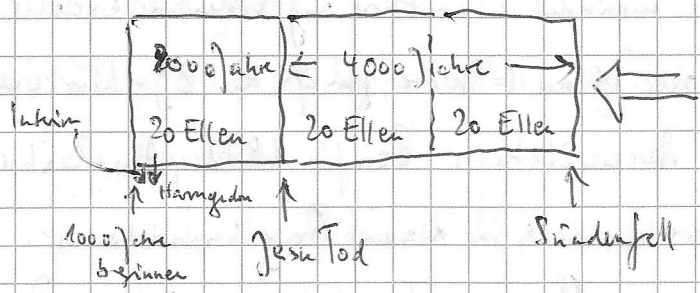 2000 Jahre 4000 Jahre
Interim 20 Ellen 20 Ellen 20 Ellen
Harmgedon
1000 Jahre
beginnen
Jesu Tod
Sündenfall